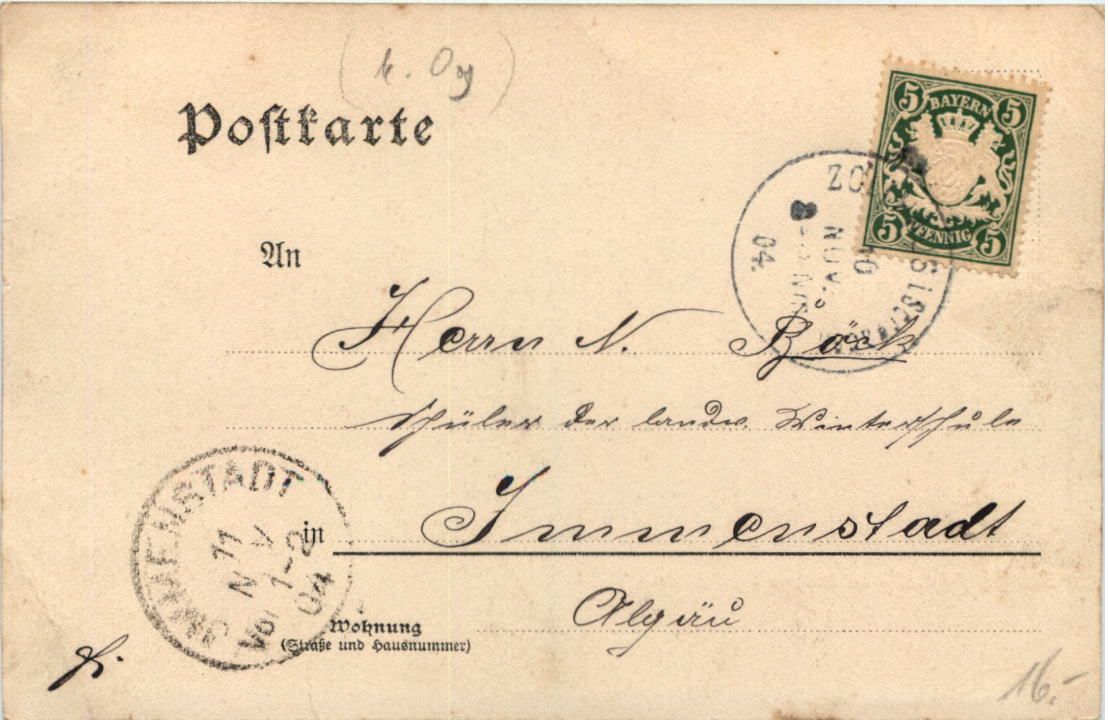 Postkarte
5 5
BAYERN
5 5
PFENNIG
10
NOV.
04.
An
Herrn N. Böck
Schüler der landw. Winterschule
in Immenstadt
Algäu
IMMENSTADT
11
NOV
Vor 1-2
04
Wohnung
(Straße und Hausnummer)
16.-